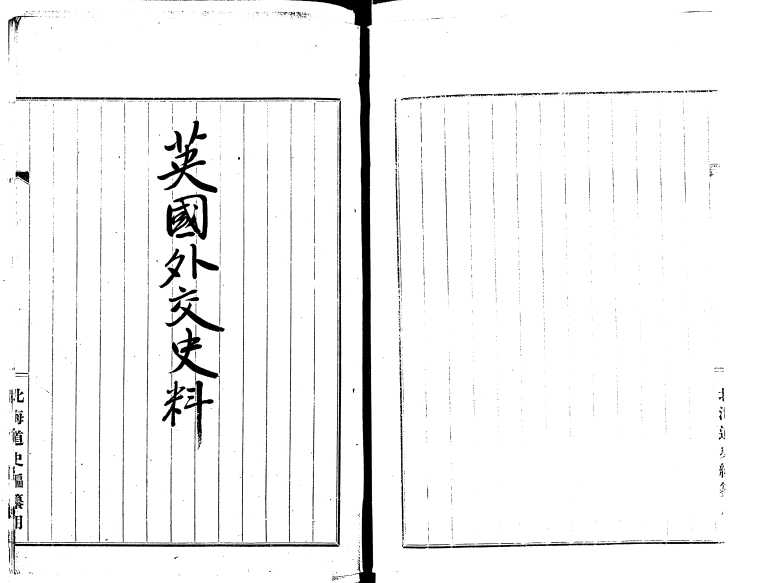 英國外交史料
北海道史編纂用
北海道史編纂